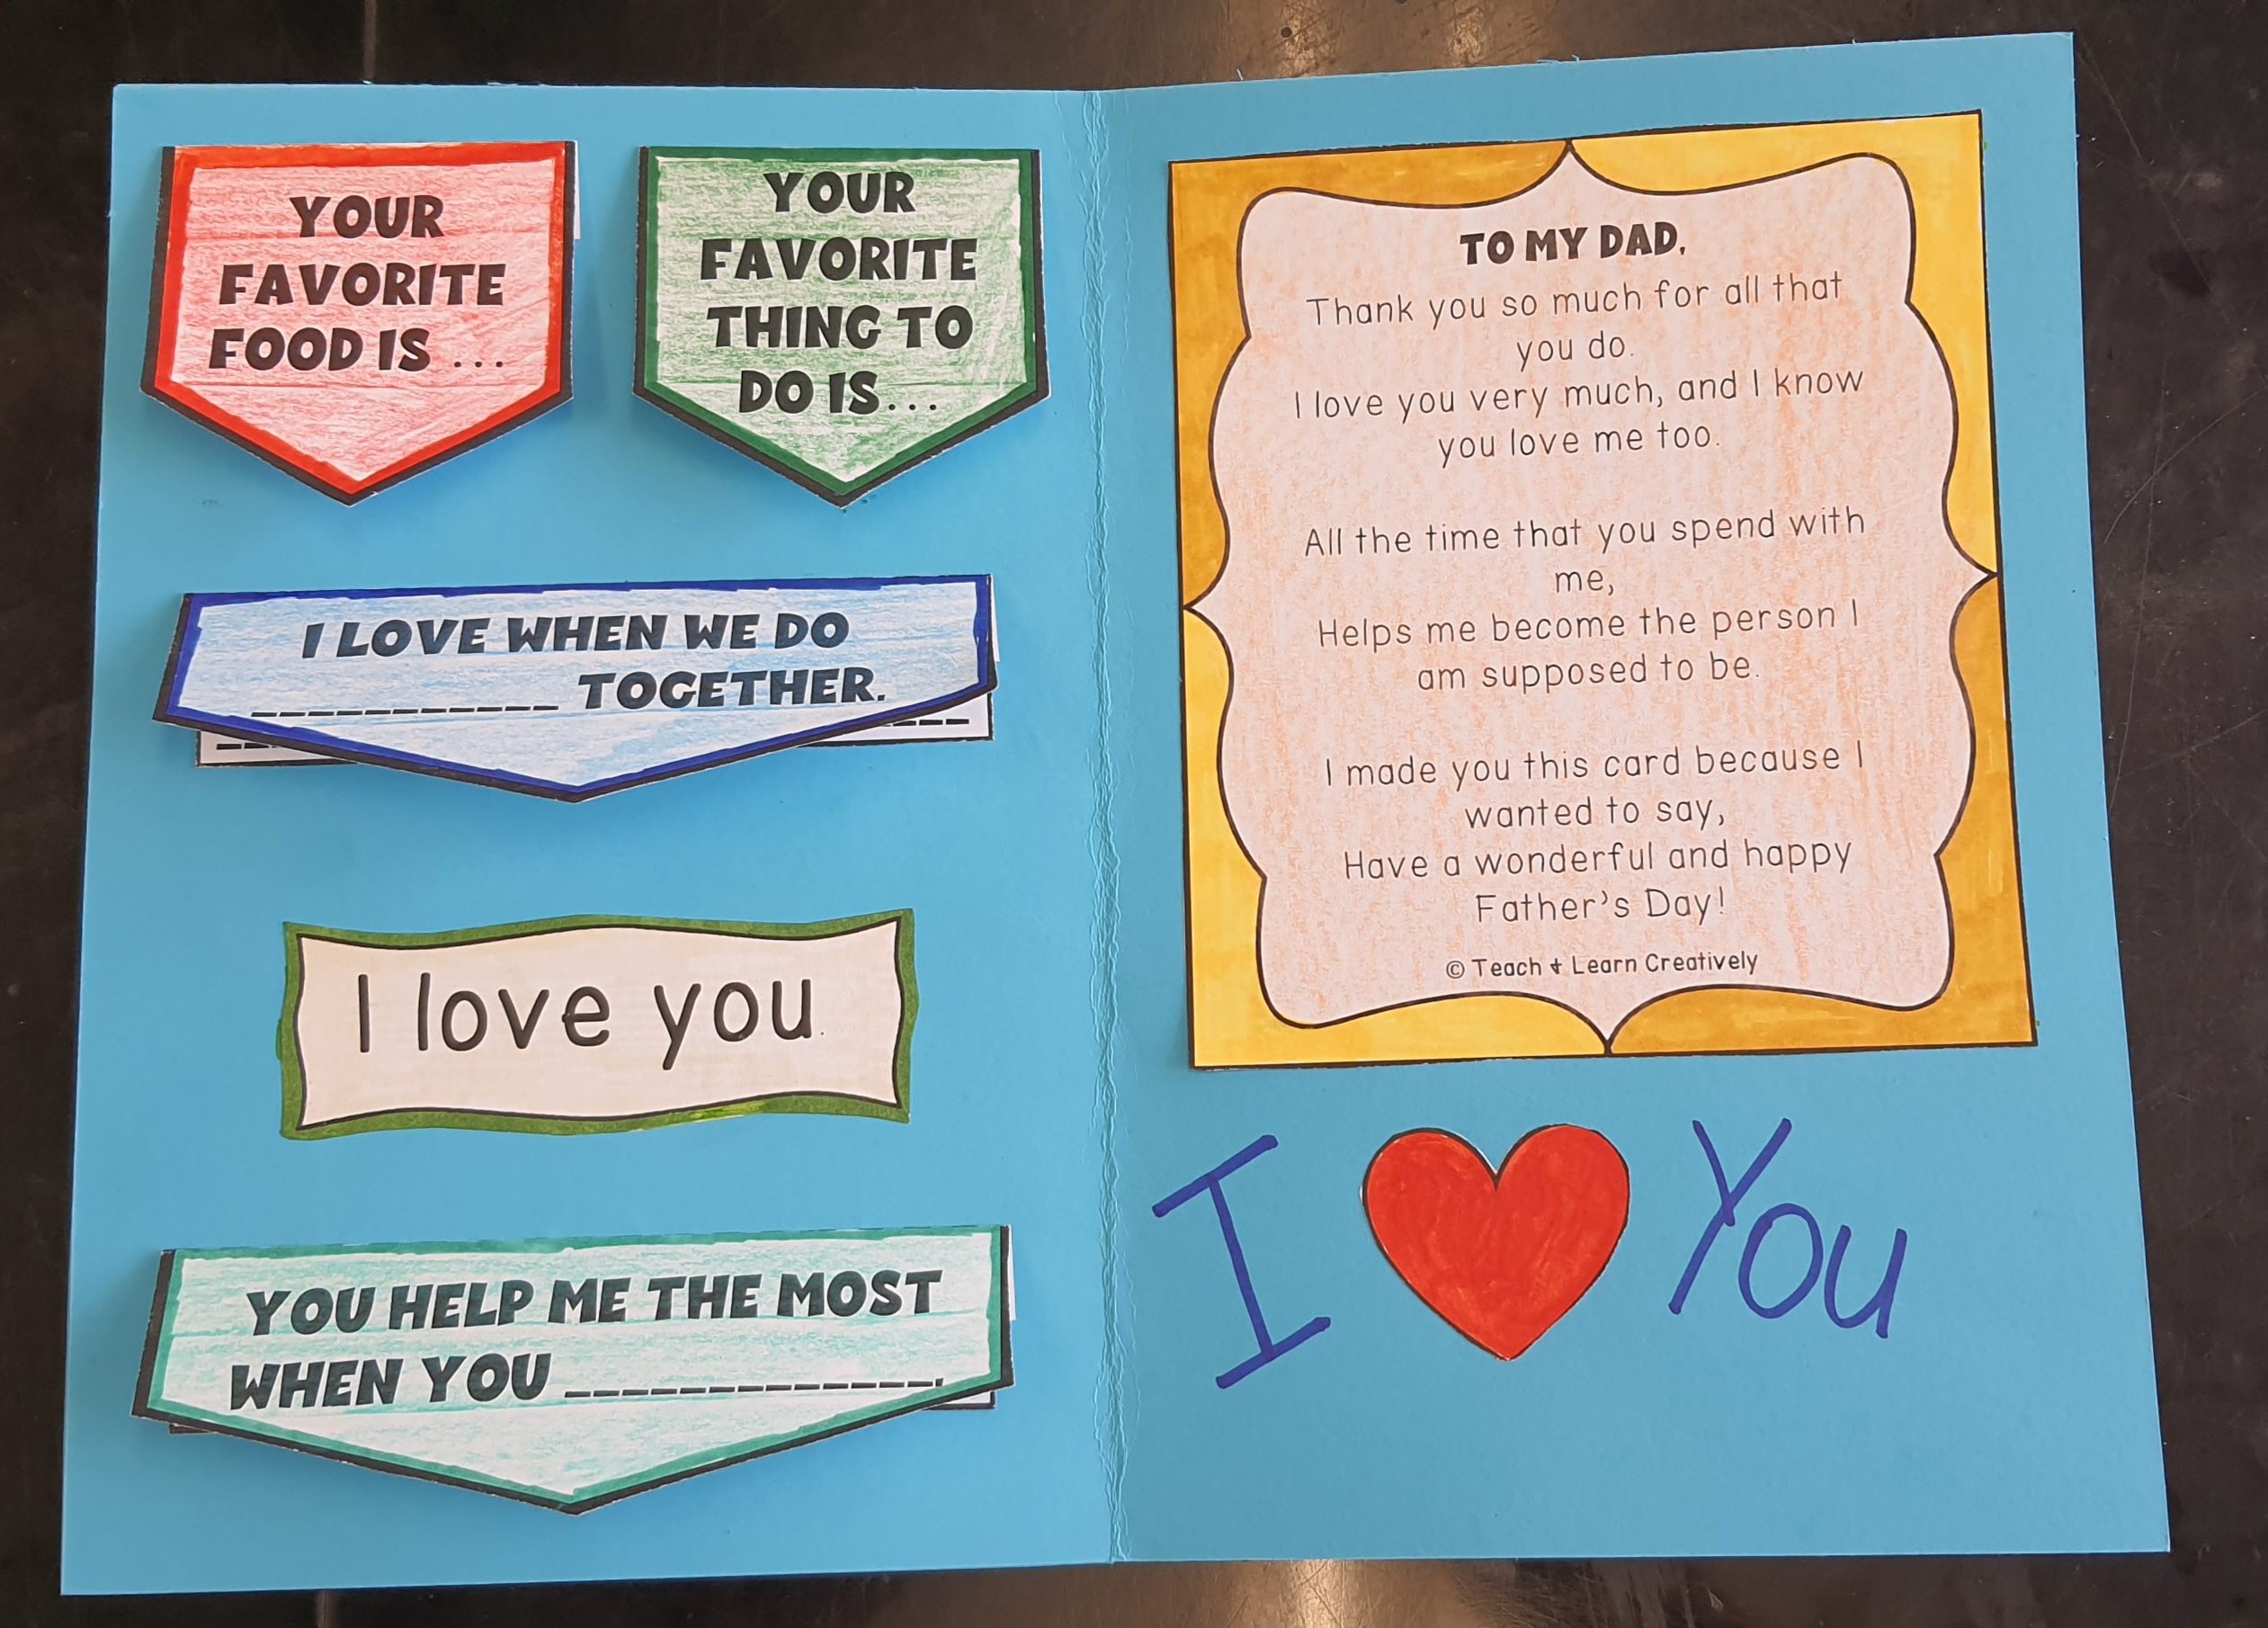 YOUR
FAVORITE
FOOD IS ...
YOUR
FAVORITE
THING TO
DO IS...
I LOVE WHEN WE DO
___________ TOGETHER.
I love you.
YOU HELP ME THE MOST
WHEN YOU _____________.
TO MY DAD,
Thank you so much for all that
you do.
I love you very much, and I know
you love me too.
All the time that you spend with
me,
Helps me become the person I
am supposed to be.
I made you this card because I
wanted to say,
Have a wonderful and happy
Father's Day!
© Teach + Learn Creatively
I ❤ You